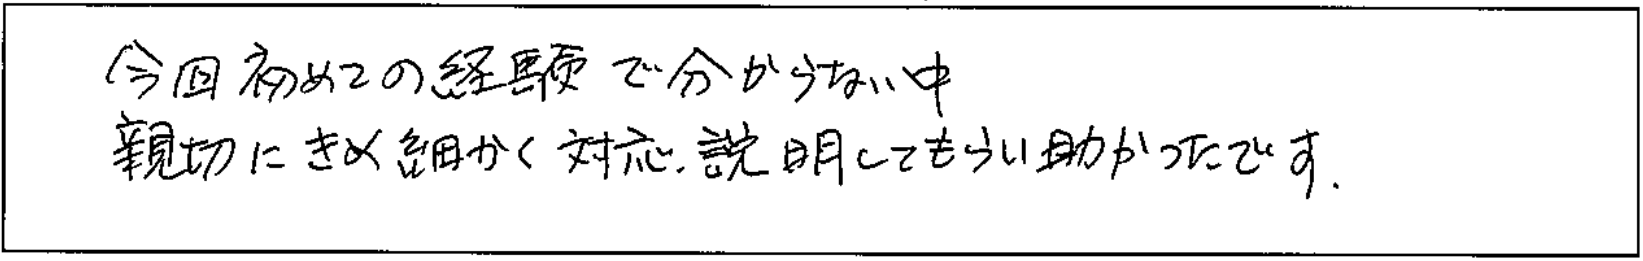 今回初めての経験で分からない中
親切にきめ細かく対応、説明してもらい助かったです.